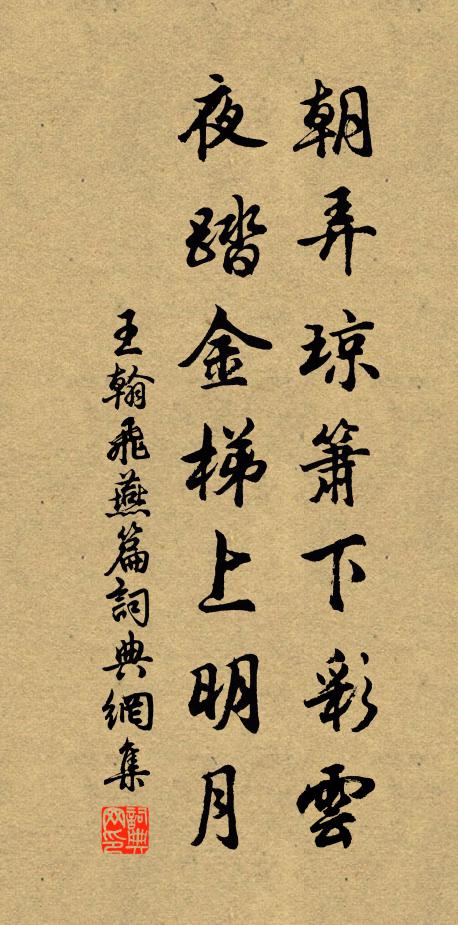 朝弄琼簫下彩雲
夜踏金梯上明月
王翰飛燕篇詞典網集
詞典网印